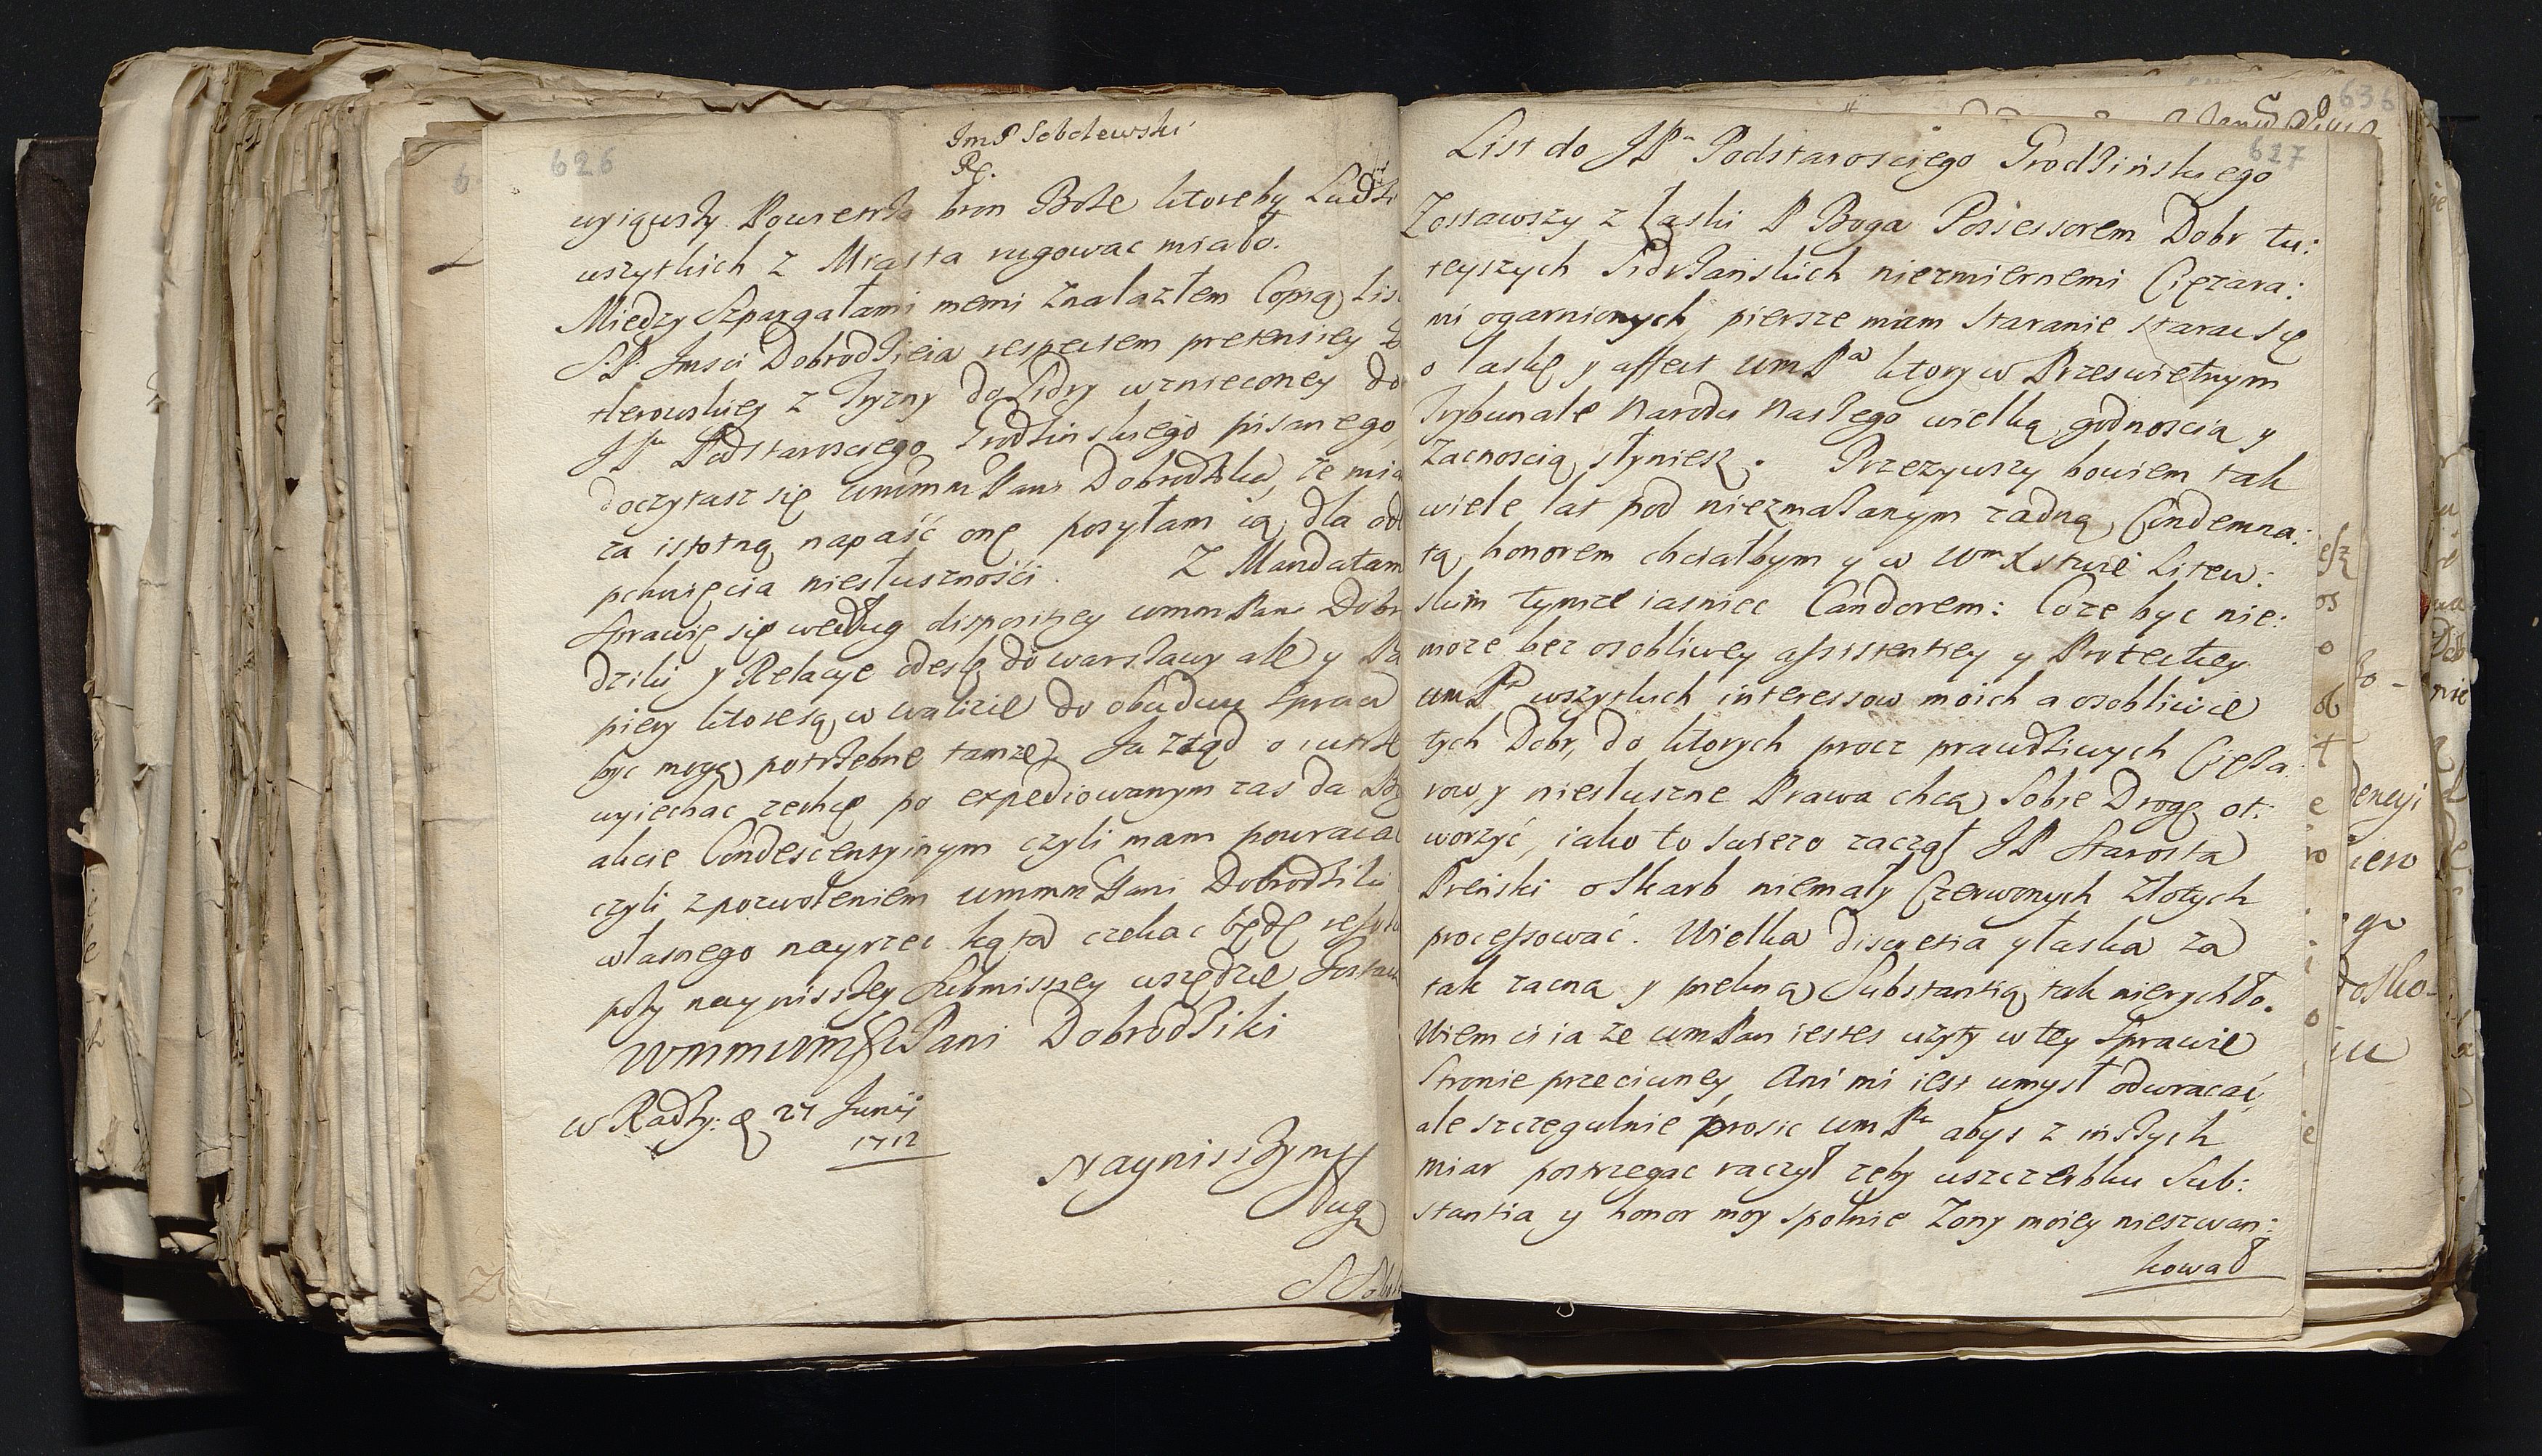 626
ImP Sobolewski
Rc.
wyiąwszy Powietrza broń Boże ktoreby Ludzi
wszytkich z Miasta rugowac miało.
Między Szpargałami memi znalazłem Copią Lis
S.P. Imsci Dobrodzieia respectem pretensiey
z Jyzny do Lidy wznieconey do
JP Podstarosciego Grodzinskiego pisanego,
doczytasz się WmmmPani Dobrodzika, że mia
za istotną napaść onę posyłam ią dla od
pchnięcia niesłusznośći. Z Mandatam
Sprawię się według dispositiey WmmmPani Dobr
dziki y Relacye odeslę do Warszawy ale y Pa
piery ktore są w walizie do obudwu spraw
być mogą potrzebne tamże. Ja ztąd o
wyiechac zechcę po expediowanym zas da Bog
akcie Condescensyinym czyli mam powraca
czyli z pozwoleniem WmmmPani Dobrodziki
własnego nayrzec kąta czekac będę
poty nayniszszey Submissiey wszędzie
WmmmPani Dobrodziki
w Radzy: d 27 Junij
1712
Nayniszszym
sługą
627
List do JPa Podstarosciego Grodzińskiego
Zostawszy z łaski P Boga Possessorem Dobr tu:
teyszych Sidrzańskich niezmiernemi Cięzara:
mi ogarnionych, piersze mam staranie starac się
o łaskę y affect WmPa ktory w Przeswietnym
Trybunale Narodu Naszego wielką godnoscią y
Zacnoscią słyniesz. Przezywszy bowiem tak
wiele lat pod niezmazanym zadną Condemna:
tą honorem chciałbym y w Wm Xstwie Litew:
skim tymze iasniec Candorem: Coze byc nie:
moze bez osobliwey assistentiey y Protectiey
WmPa wszytkich interessow moich a osobliwie
tych Dobr, do ktorych procz prawdziwych Cięza
row y niesłuszne Prawa chcą Sobie Drogę ot:
worzyć, iako to swiezo zaczął JP Starosta
Preński o Skarb niemały Czerwonych złotych
processować. Wielka discretia y łaska za
tak zacną y pełną Substantią tak nierychło.
Wiem ci ia ze WmPan iestes uzyty w tey Sprawie
Stronie przeciwney, Ani mi iest umysł odwracać,
ale szczegulnie prosic WmPa abys z inszych
miar postrzegac raczył zeby uszczerbku Sub:
stantia y honor moy spolnie Zony moiey nieszwan:
kował
636